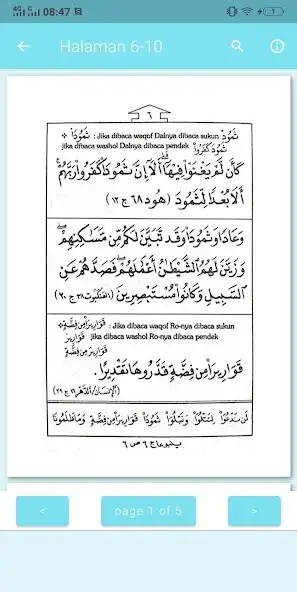 08:47
Halaman 6-10
٦
❖ ثَمُودَاْ : Jika dibaca waqof Dalnya dibaca sukun ثَمُودْ
jika dibaca washol Dalnya dibaca pendek ثَمُودَ كَفَرُواْ
كَأَن لَّمْ يَغْنَوْاْ فِيهَآ أَلَآ إِنَّ ثَمُودَاْ كَفَرُواْ رَبَّهُمْ
أَلَا بُعْدًا لِّثَمُودَ (هود ٦٨ ج ١٢)
وَعَادًا وَثَمُودَاْ وَقَد تَّبَيَّنَ لَكُم مِّن مَّسَٰكِنِهِمْ
وَزَيَّنَ لَهُمُ الشَّيْطَٰنُ أَعْمَٰلَهُمْ فَصَدَّهُمْ عَنِ
السَّبِيلِ وَكَانُواْ مُسْتَبْصِرِينَ (العنكبوت ٣٨ ج ٢٠)
❖ قَوَارِيرَاْ مِن فِضَّةٍ : Jika dibaca waqof Ro-nya dibaca sukun
قَوَارِيرْ jika dibaca washol Ro-nya dibaca pendek
قَوَارِيرَ مِن فِضَّةٍ
قَوَارِيرَاْ مِن فِضَّةٍ قَدَّرُوهَا تَقْدِيرًا.
(الإنسان/الدهر ١٦ ج ٢٩)
لَن نَّدْعُوَاْ لِتَتْلُوَاْ وَنَبْلُوَاْ ثَمُودَاْ قَوَارِيرَاْ مِن فِضَّةٍ وَمَا ظَلَمُونَا
ينبوعا ج ٦ ص ٦
<
page 1 of 5
>